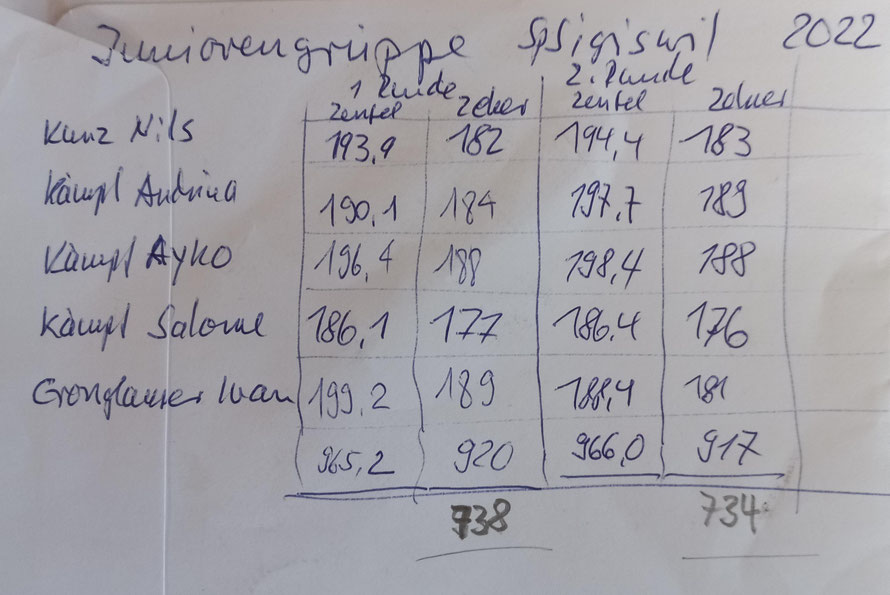 Juniorengruppe SpSigiswil 2022
1 Runde 2. Runde
Zentel Zehner Zentel Zehner
Kunz Nils 193,9 182 194,4 183
Kämpf Andrina 190,1 184 197,7 189
Kämpf Ayko 196,4 188 198,4 188
Kämpf Salome 186,1 177 186,4 176
Ivan 199,2 189 188,4 181
965,2 920 966,0 917
738 734